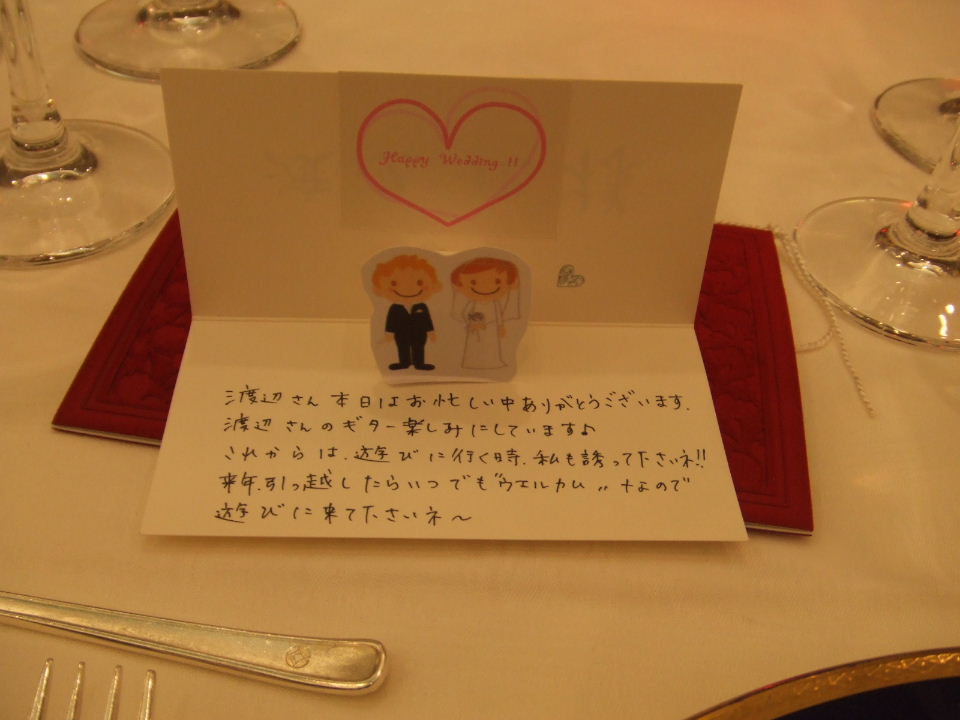 Happy Wedding !!
渡辺さん本日はお忙しい中ありがとうございます.
渡辺さんのギター楽しみにしています♪
これからは、遊びに行く時、私も誘って下さいネ!!
来年、引っ越したらいつでも"ウエルカム〃なので
遊びに来て下さいネ〜